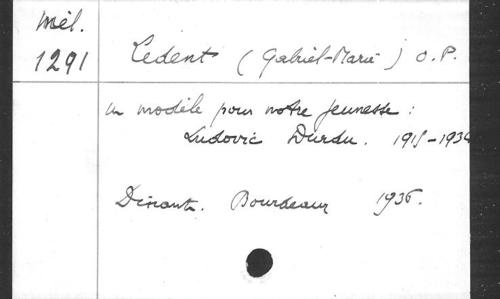 Mél.
1291
Cedent (Gabriel-Marie) O.P.
un modèle pour notre jeunesse :
Ludovic Durdu. 1918-1934
Dinant. Bourdeaux 1936.